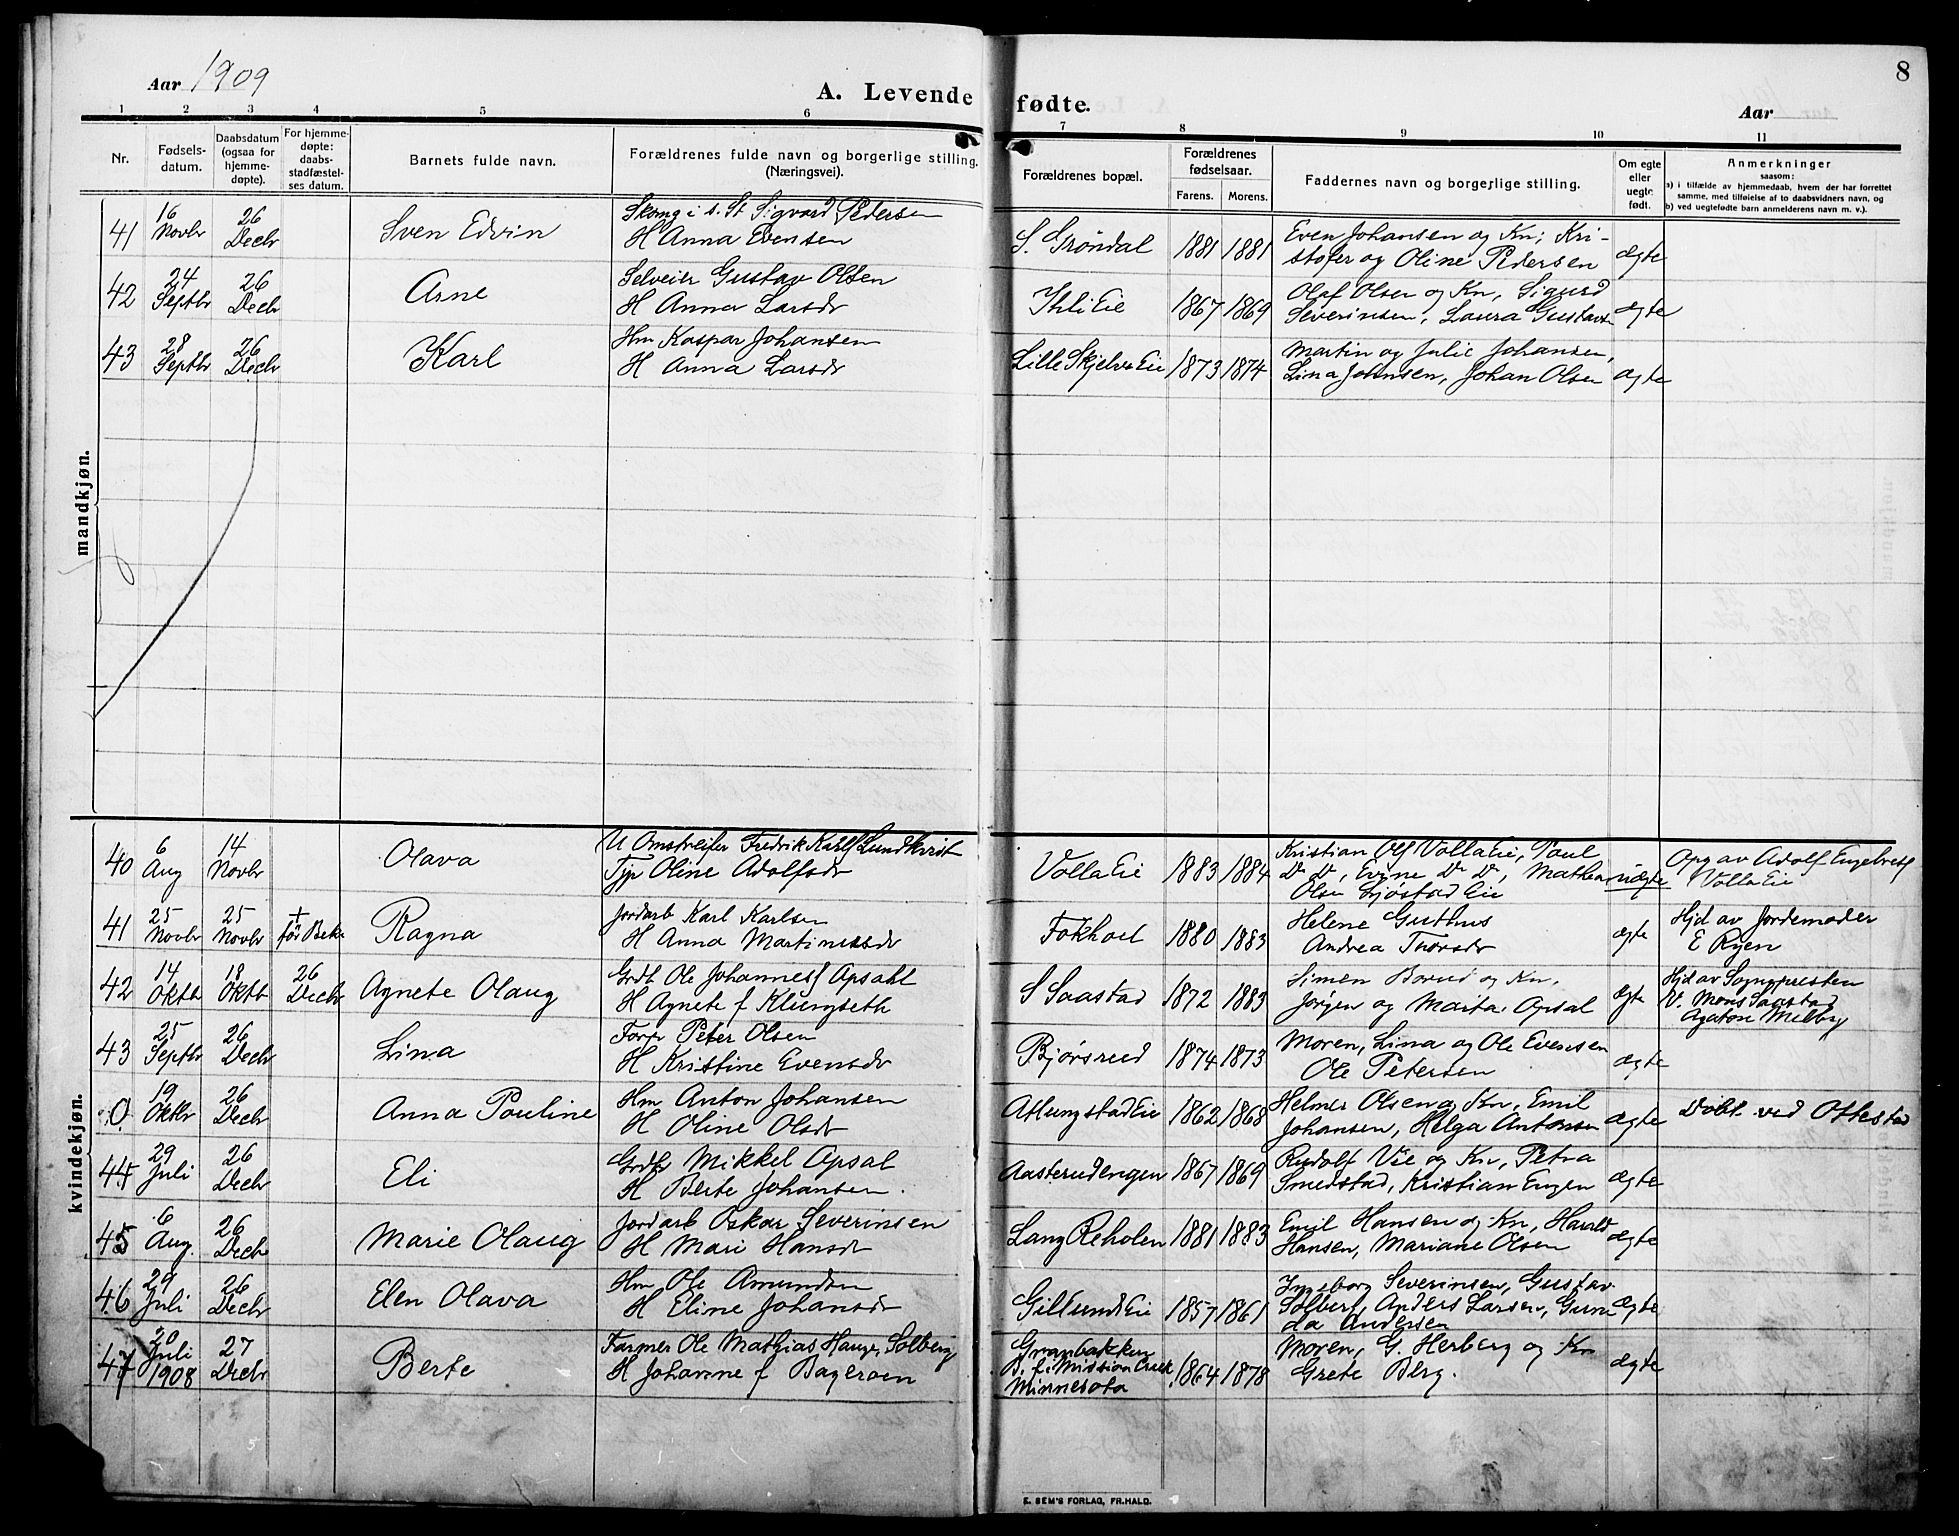 8
Aar 1909
A. Levende fødte.
Aar
1 2 3 4 5 6 7 8 9 10 11
Nr.
Fødsels-
datum.
Daabsdatum
(ogsaa for
hjemme-
døpte).
For hjemme-
døpte:
daabs-
stadfæstel-
ses datum.
Barnets fulde navn.
Forældrenes fulde navn og borgerlige stilling.
(Næringsvei).
Forældrenes bopæl.
Forældrenes
fødselsaar.
Farens. Morens.
Faddernes navn og borgerlige stilling.
Om egte
eller
uegte
født.
Anmerkninger
saasom:
a) i tilfælde av hjemmedaab, hvem der har forrettet
samme, med tilføielse af to daabsvidners navn, og
b) ved uegtefødte barn anmelderens navn m. v.).
mandkjøn.
41 16 Novbr 26 Decbr Sven Edvin
Sigvard Pedersen
H Anna Evensen
S. Grøndal 1881 1881
Even Johansen og Kn; Kri-
stofer og Oline Pedersen
ægte
42 24 Septbr 26 Decbr Arne
Selveier Gustav Olsen
H Anna Larsdr
1867 1869
Olaf Olsen og Kn, Sigurd
Severinsen, Laura Gustavsen
ægte
43 28 Septbr 26 Decbr Karl
Hm Kaspar Johansen
H Anna Larsdr
Lille Skjelve Eie 1873 1874
Martin og Julie Johansen,
Lina Johnsen, Johan Olsen
ægte
kvindekjøn.
40 6 Aug 14 Novbr Olava
U Omstreifer Fredrik Karl Lundkvist
Oline Adolfsdr
Volla Eie 1883 1884
Kristian Ols Volla Eie, Paul
Do Do, Evine Do Do, Mathea
Olsen Sjøstad Eie
uægte
Opg av Adolf Engebrets
Volla Eie
41 25 Novbr 25 Novbr + før Bekr Ragna
Jordarb Karl Karlsen
H Anna Martinusdr
Fokhol 1880 1883
Helene Gusthus
Andrea Thorsdr
ægte
Hjd av Jordemoder
E Ryen
42 14 Oktb 18 Oktb 26 Decbr Agnete Olaug
Grdb Ole Johannes Opsahl
H Agnete f Klungseth
S Saastad 1872 1883
Simen Borud og Kn,
Jørgen og Marta Opsal
ægte
Hjd av Sognepresten
V. Mons Saastad
Agaton Melby
43 25 Septbr 26 Decbr Lina
Forp Peter Olsen
H Kristine Evensdr
Bjørsrud 1874 1873
Moren, Lina og Ole Evensen
Ole Petersen
ægte
0 19 Oktbr 26 Decbr Anna Pouline
Hm Anton Johansen
H Oline Olsdr
Atlungstad Eie 1862 1868
Helmer Olsen og Kn, Emil
Johansen, Helga Antonsen
ægte
Døbt ved Ottestad
44 29 Juli 26 Decbr Eli
Grdb Mikkel Opsal
H Berte Johansen.
Aasterudengen 1867 1869
Rudolf Vie og Kn, Petra
Smedstad, Kristian Engen
ægte
45 6 Aug 26 Decbr Marie Olaug
Jordarb Oskar Severinsen
H Mari Hansdr
Lang Reholen 1881 1883
Emil Hansen og Kn, Harald
Hansen, Mariane Olsen
ægte
46 29 Juli 26 Decbr Elen Olava
Hm Ole Amundsen
H Eline Johansdr
Gillund Eie 1857 1861
Ingeborg Severinsen, Gustav
Solberg, Anders Larsen, Gun-
da Andersen
ægte
47 20 Juli 1908 27 Decbr Berte
Farmer Ole Mathias Hauge Solberg
H Johanne f Bageroen
Granbakken
Mission Creek
Minnesota
1864 1878
Moren, G. Herberg og Kn
Grete Berg.
ægte
E. SEM'S FORLAG, FR.HALD.